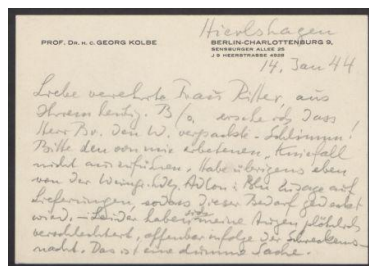 Hierlshagen
PROF. DR. H. C. GEORG KOLBE
BERLIN-CHARLOTTENBURG 9,
SENSBURGER ALLEE 25
J 9 HEERSTRASSE 4528
14. Jan 44
Liebe verehrte Frau Ritter, aus
Ihrem heutig. B/a, ersehe ich, dass
Herr Dr. den W. verpackte - Schlimm!
Bitte den von mir erbetenen, Kniefall
nicht auszuführen. Habe übrigens eben
von der Weing. Adlon: Köln Zusage auf
Lieferungen, sodass dieser Bedarf gedeckt
wird. - Leider haben sich meine Augen plötzlich
verschlechtert, offenbar infolge der Schreckens-
nacht. Das ist eine dumme Sache.